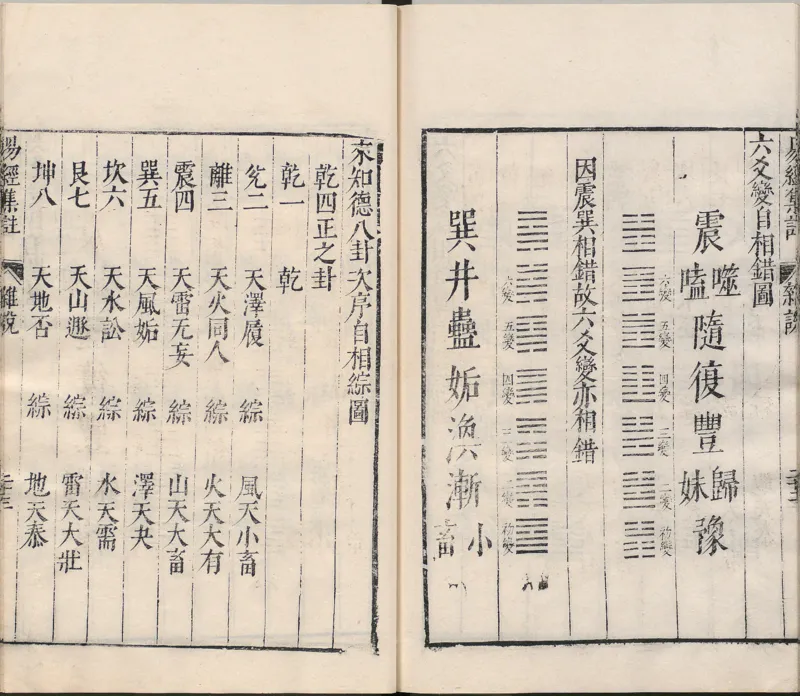 易經集註 雜說
六爻變自相錯圖
震 噬嗑 隨 復 豐 歸妹 豫
六變 五變 四變 三變 二變 初變
因震巽相錯故六爻變亦相錯
六變 五變 四變 三變 二變 初變
巽 井 蠱 姤 渙 漸 小畜
來知德八卦次序自相綜圖
乾四正之卦
乾一 乾
兊二 天澤履 綜 風天小畜
離三 天火同人 綜 火天大有
震四 天雷无妄 綜 山天大畜
巽五 天風姤 綜 澤天夬
坎六 天水訟 綜 水天需
艮七 天山遯 綜 雷天大壯
坤八 天地否 綜 地天泰
易經集註 雜說